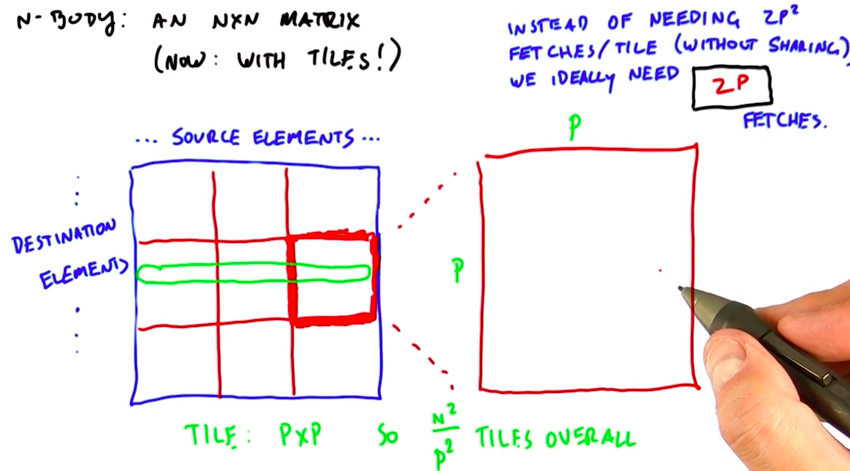 N-BODY: AN NXN MATRIX
(NOW: WITH TILES!)
INSTEAD OF NEEDING 2P²
FETCHES/TILE (WITHOUT SHARING)
WE IDEALLY NEED 2P
FETCHES.
... SOURCE ELEMENTS ...
DESTINATION
ELEMENTS
P
P
TILE: PXP SO N²/P² TILES OVERALL